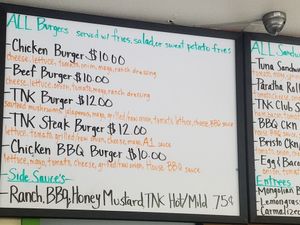 ALL Burgers served w/ fries, salad, or sweet potato fries
-Chicken Burger $10.00
cheese, lettuce, tomato, onion, mayo, ranch dressing
-Beef Burger $10.00
cheese, lettuce, tomato, onion, mayo, ranch dressing
-TNK Burger $12.00
sauteed mushrooms, jalapenos, mayo, grilled/raw onion, tomato, lettuce, house BBQ sauce
-TNK Steak Burger $12.00
lettuce, tomato, grilled/raw onion, cheese, mayo, A1 sauce
-Chicken BBQ Burger $10.00
lettuce, mayo, tomato, cheese, grilled/raw onion, House BBQ sauce
Side Sauce's-
-Ranch, BBQ, Honey Mustard TNK Hot/Mild 75¢
ALL Sand
-Tuna Sandw
-Paratha Roll
-TNK Club S
-BBQ CKN
-Bristo CKn
-Egg & Bacon
Entrees
-Mongolian
-Lemongrass
-Carmalized